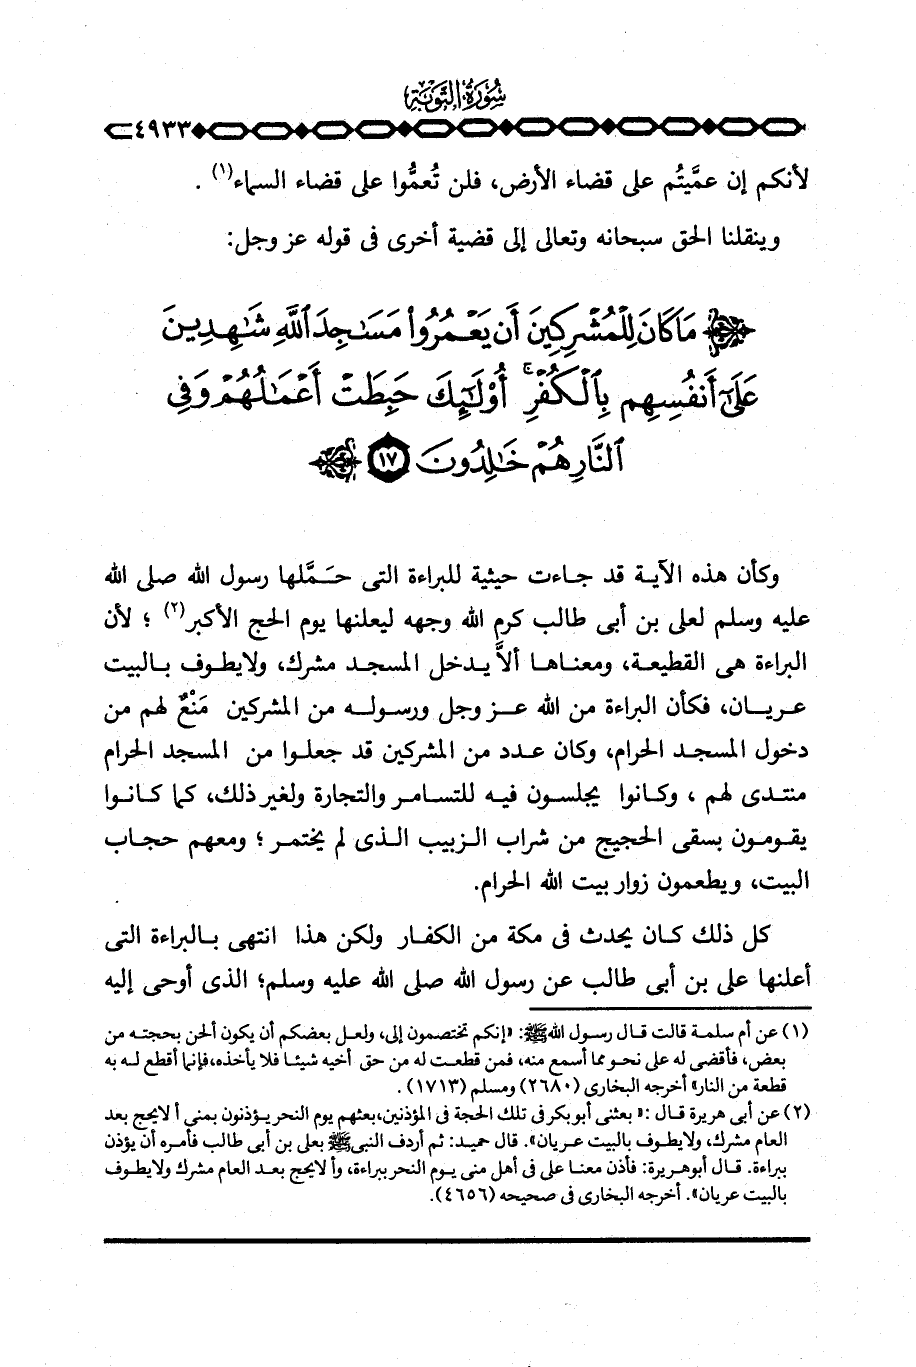 سُورَةُ التَّوبَةِ
٤٩٣٣
لأنكم إن عمَّيتُم على قضاء الأرض، فلن تُعمُّوا على قضاء السماء(١) .
وينقلنا الحق سبحانه وتعالى إلى قضية أخرى فى قوله عز وجل:
مَا كَانَ لِلْمُشْرِكِينَ أَن يَعْمُرُوا۟ مَسَٰجِدَ ٱللَّهِ شَٰهِدِينَ
عَلَىٰٓ أَنفُسِهِم بِٱلْكُفْرِ ۚ أُو۟لَٰٓئِكَ حَبِطَتْ أَعْمَٰلُهُمْ وَفِى
ٱلنَّارِ هُمْ خَٰلِدُونَ ١٧
وكأن هذه الآية قد جاءت حيثية للبراءة التى حمَّلها رسول الله صلى الله
عليه وسلم لعلى بن أبى طالب كرم الله وجهه ليعلنها يوم الحج الأكبر(٢) ؛ لأن
البراءة هى القطيعة، ومعناها ألاَّ يدخل المسجد مشرك، ولايطوف بالبيت
عريان، فكأن البراءة من الله عز وجل ورسوله من المشركين مَنْعٌ لهم من
دخول المسجد الحرام، وكان عدد من المشركين قد جعلوا من المسجد الحرام
منتدى لهم ، وكانوا يجلسون فيه للتسامر والتجارة ولغير ذلك، كما كانوا
يقومون بسقى الحجيج من شراب الزبيب الذى لم يختمر ؛ ومعهم حجاب
البيت، ويطعمون زوار بيت الله الحرام.
كل ذلك كان يحدث فى مكة من الكفار ولكن هذا انتهى بالبراءة التى
أعلنها على بن أبى طالب عن رسول الله صلى الله عليه وسلم؛ الذى أوحى إليه
(١) عن أم سلمة قالت قال رسول الله ﷺ: «إنكم تختصمون إلى، ولعل بعضكم أن يكون ألحن بحجته من
بعض، فأقضى له على نحو مما أسمع منه، فمن قطعت له من حق أخيه شيئا فلا يأخذه،فإنما أقطع له به
قطعة من النار» أخرجه البخارى (٢٦٨٠) ومسلم (١٧١٣) .
(٢) عن أبى هريرة قال :« بعثنى أبو بكر فى تلك الحجة فى المؤذنين،بعثهم يوم النحر يؤذنون بمنى أ لايحج بعد
العام مشرك، ولايطوف بالبيت عريان». قال حميد: ثم أردف النبى ﷺ بعلى بن أبى طالب فأمره أن يؤذن
ببراءة. قال أبوهريرة: فأذن معنا على فى أهل منى يوم النحر ببراءة، وأ لايحج بعد العام مشرك ولايطوف
بالبيت عريان». أخرجه البخارى فى صحيحه (٤٦٥٦).